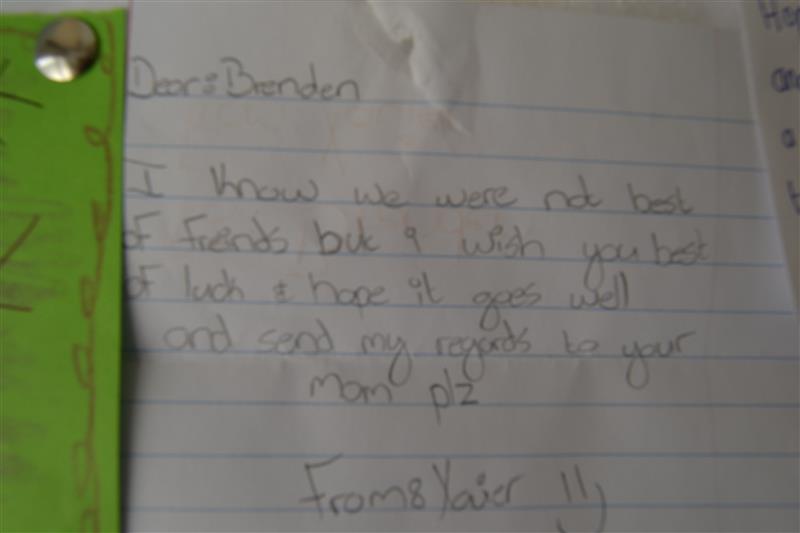 Dear: Brenden
I know we were not best
of freinds but i wish you best
of luck & hope it goes well
and send my regards to your
mom plz
From: Yaier =)
Hop
an
a